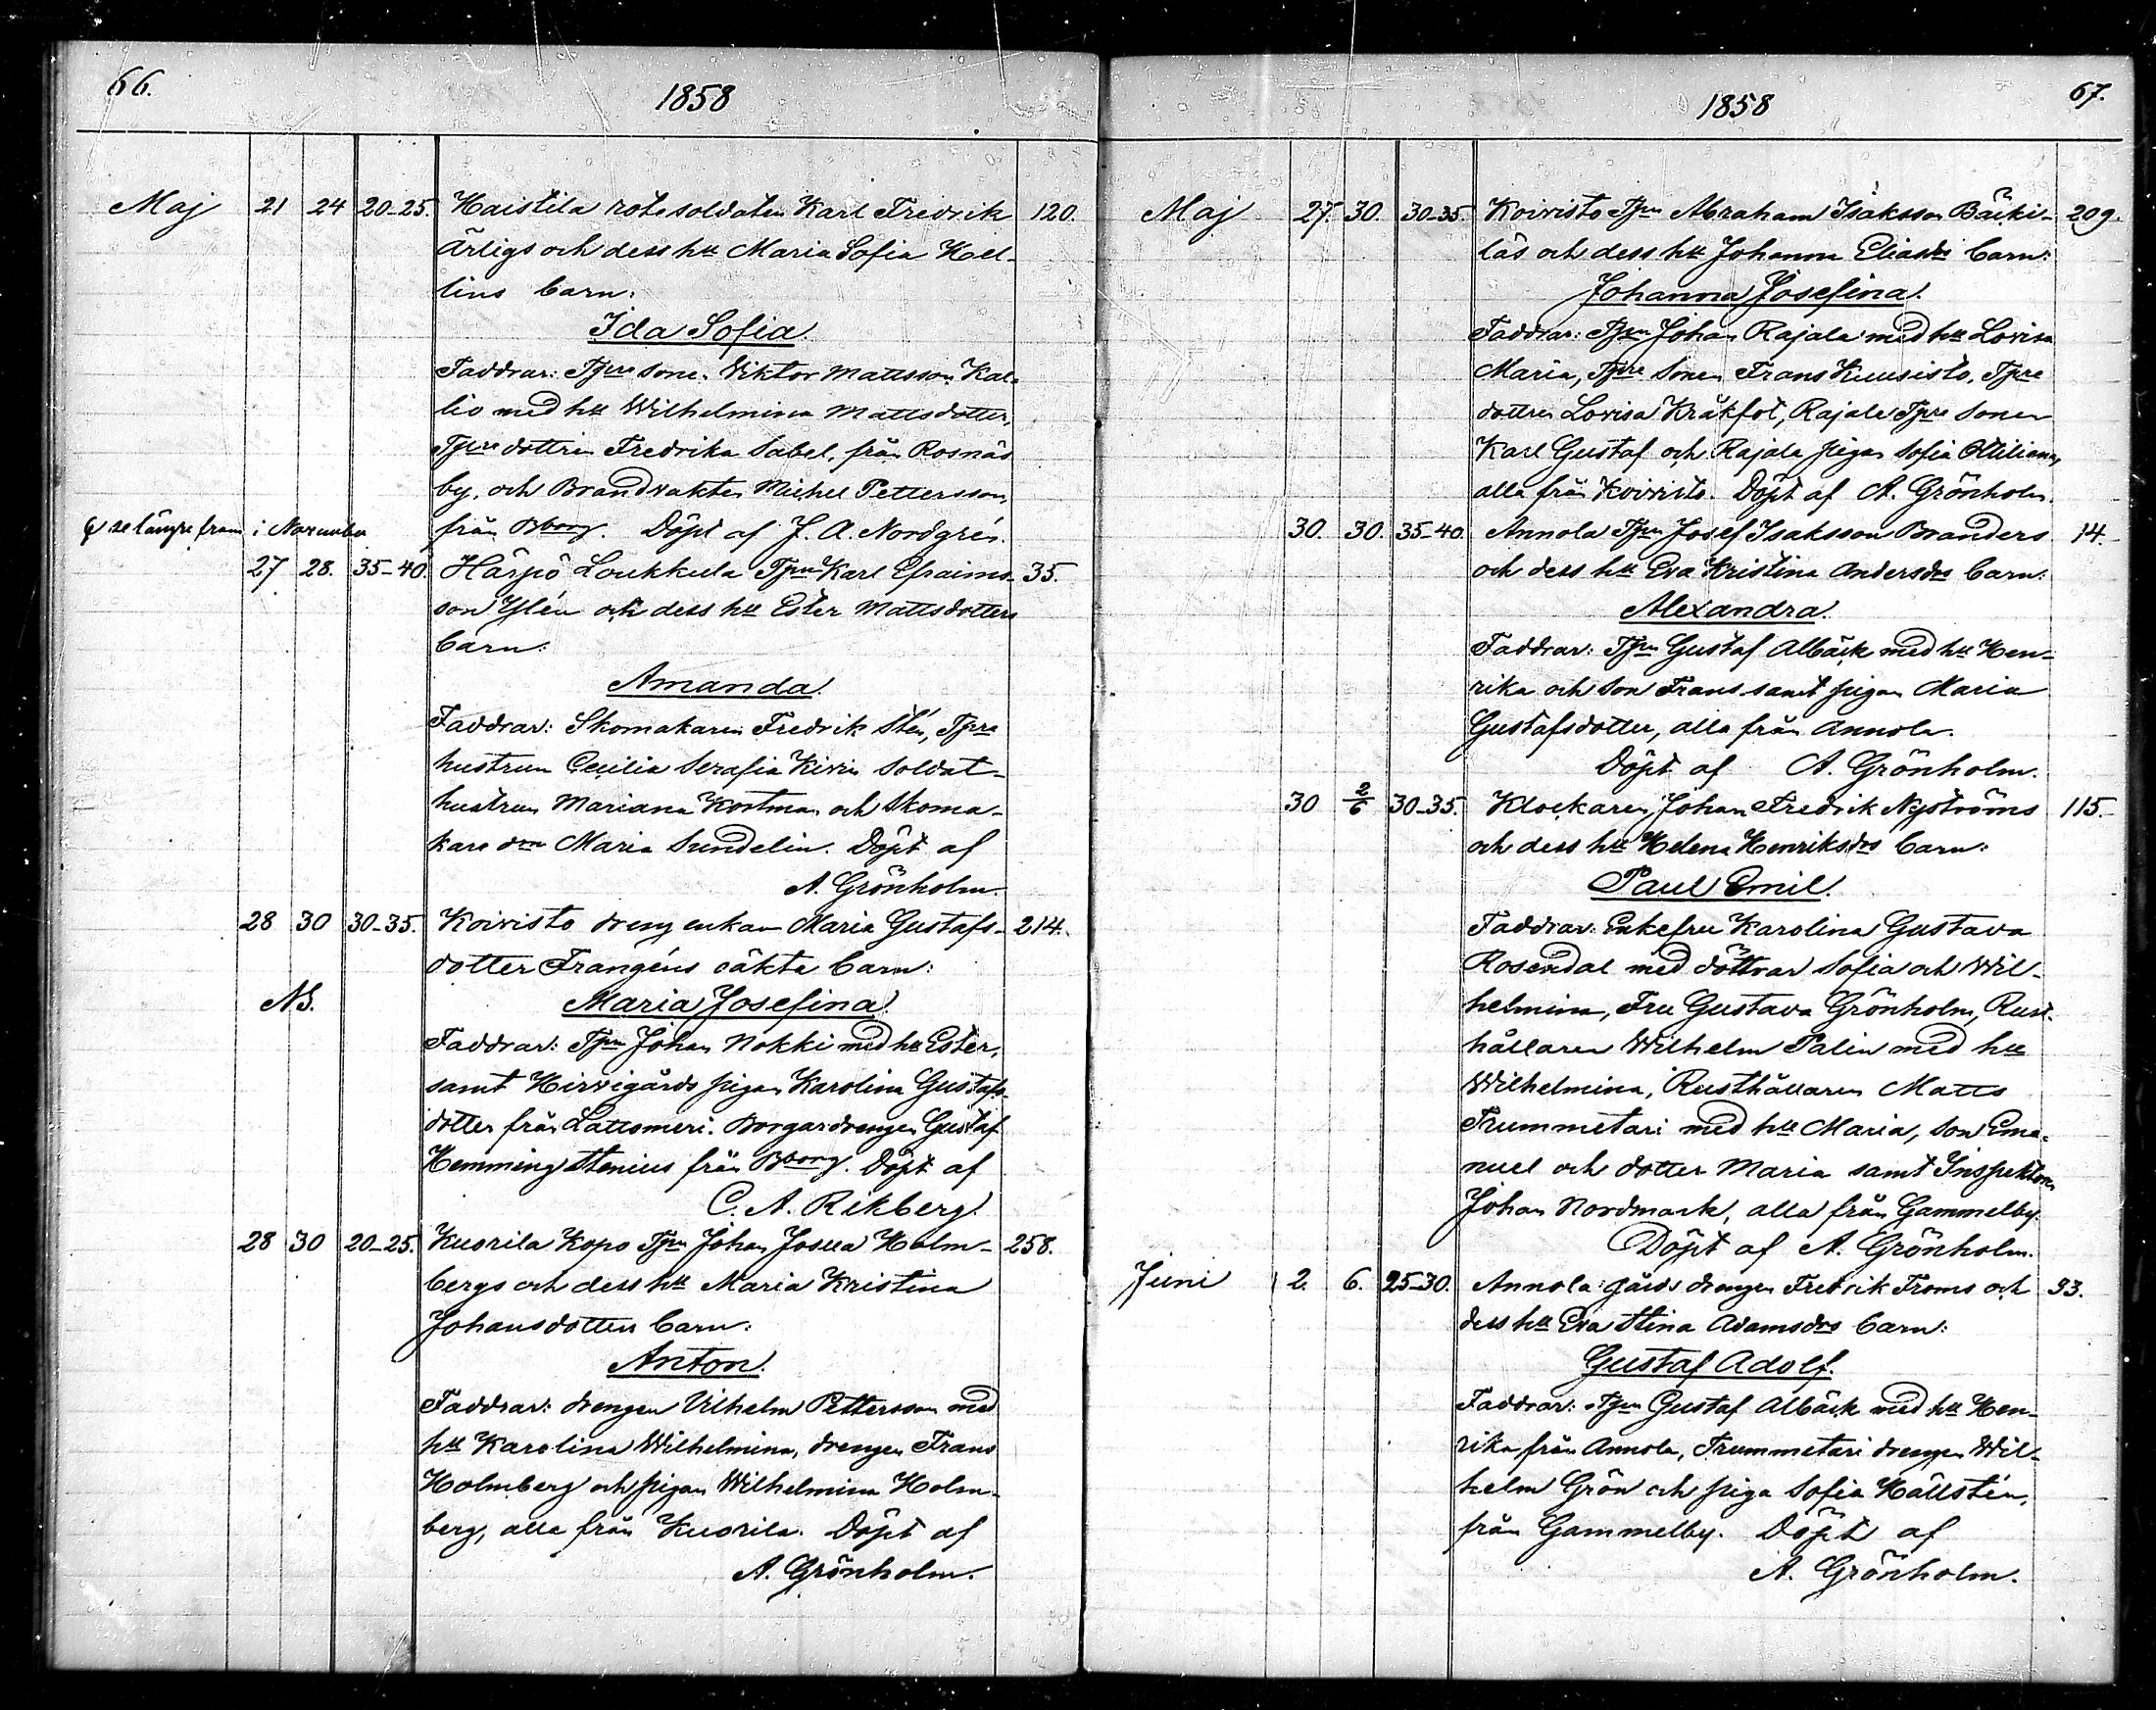 66.
1858
Maj 21 24 20-25. Haistila rotesoldaten Karl Fredrik 120.
Ärligs och dess hu Maria Sofia Hel-
lins barn:
Ida Sofia.
Faddrar: Tjpre sone. Viktor Mattsson Kal-
lio med hu Wilhelmina Mattsdotter,
Tjpre dottren Fredrika Sabel, från Rosnäs
by, och Brandvakten Michel Pettersson,
från Bborg. Döpt af J. A. Nordgrén.
se längre fram i November
27 28. 35-40. Härpö Loukkula Tjpn Karl Efraims- 35.
son Ylén och dess hu Ester Mattsdotters
barn:
Amanda.
Faddrar: Skomakaren Fredrik Stén, Tjpre
hustrun Cecilia Serafia Kivin soldat-
hustrun Mariana Kortman och skoma-
kare drn Maria Sundelin. Döpt af
A. Grönholm.
28 30 30-35. Koivisto dreng enkan Maria Gustafs- 214.
dotter Frangéns oäkta barn:
NB. Maria Josefina.
Faddrar: Tjpn Johan Nokki med hu Ester,
samt Hirvigårds pigan Karolina Gustafs-
dotter från Lattomeri. Borgardrengen Gustaf
Hemming Stenius från Bborg. Döpt af
C. A. Rikberg.
28 30 20-25. Kuorila Kopo Tjpn Johan Josua Holm- 258.
bergs och dess hu Maria Kristina
Johansdotters barn:
Anton.
Faddrar: drengen Vilhelm Pettersson med
hu Karolina Wilhelmina, drengen Frans
Holmberg och pigan Wilhelmina Holm-
berg, alla från Kuorila. Döpt af
A. Grönholm.
67.
1858
Maj 27. 30. 30-35. Koivisto Tjpn Abraham Isaksson Bäcki- 209.
läs och dess hu Johanna Eliasds barn:
Johanna Josefina.
Faddrar: Tjpn Johan Rajala med hu Lovisa
Maria, Tjpre sonen Frans Kuusisto, Tjpre
dottren Lovisa Kråkfot, Rajala Tjpre sonen
Karl Gustaf och Rajala pigan Sofia Ottiliana,
alla från Koivisto. Döpt af A. Grönholm.
30. 30. 35-40. Annola Tjpn Josef Isaksson Branders 14.
och dess hu Eva Kristina Andersdrs barn:
Alexandra.
Faddrar: Tjpn Gustaf Albäck med hu Hen-
rika och son Frans samt pigan Maria
Gustafsdotter, alla från Annola.
Döpt af A. Grönholm.
30 2/6 30-35. Klockaren Johan Fredrik Nyströms 115.
och dess hu Helena Henriksdrs barn:
Paul Emil.
Faddrar: Enkefru Karolina Gustava
Rosendal med döttrar Sofia och Wil-
helmina, Fru Gustava Grönholm, Rust-
hållaren Wilhelm Palin med hu
Wilhelmina, Rusthållaren Matts
Trummetari med hu Maria, son Ema-
nuel och dotter Maria samt Inspektoren
Johan Nordmark, alla från Gammelby.
Döpt af A. Grönholm.
Juni 2. 6. 25-30. Annola gårds drengen Fredrik Froms och 33.
dess hu Eva Stina Adamsdrs barn:
Gustaf Adolf.
Faddrar: Tjpn Gustaf Albäck med hu Hen-
rika från Annola, Trummetari drengen Wil-
helm Grön och piga Sofia Hällstén,
från Gammelby. Döpt af
A. Grönholm.